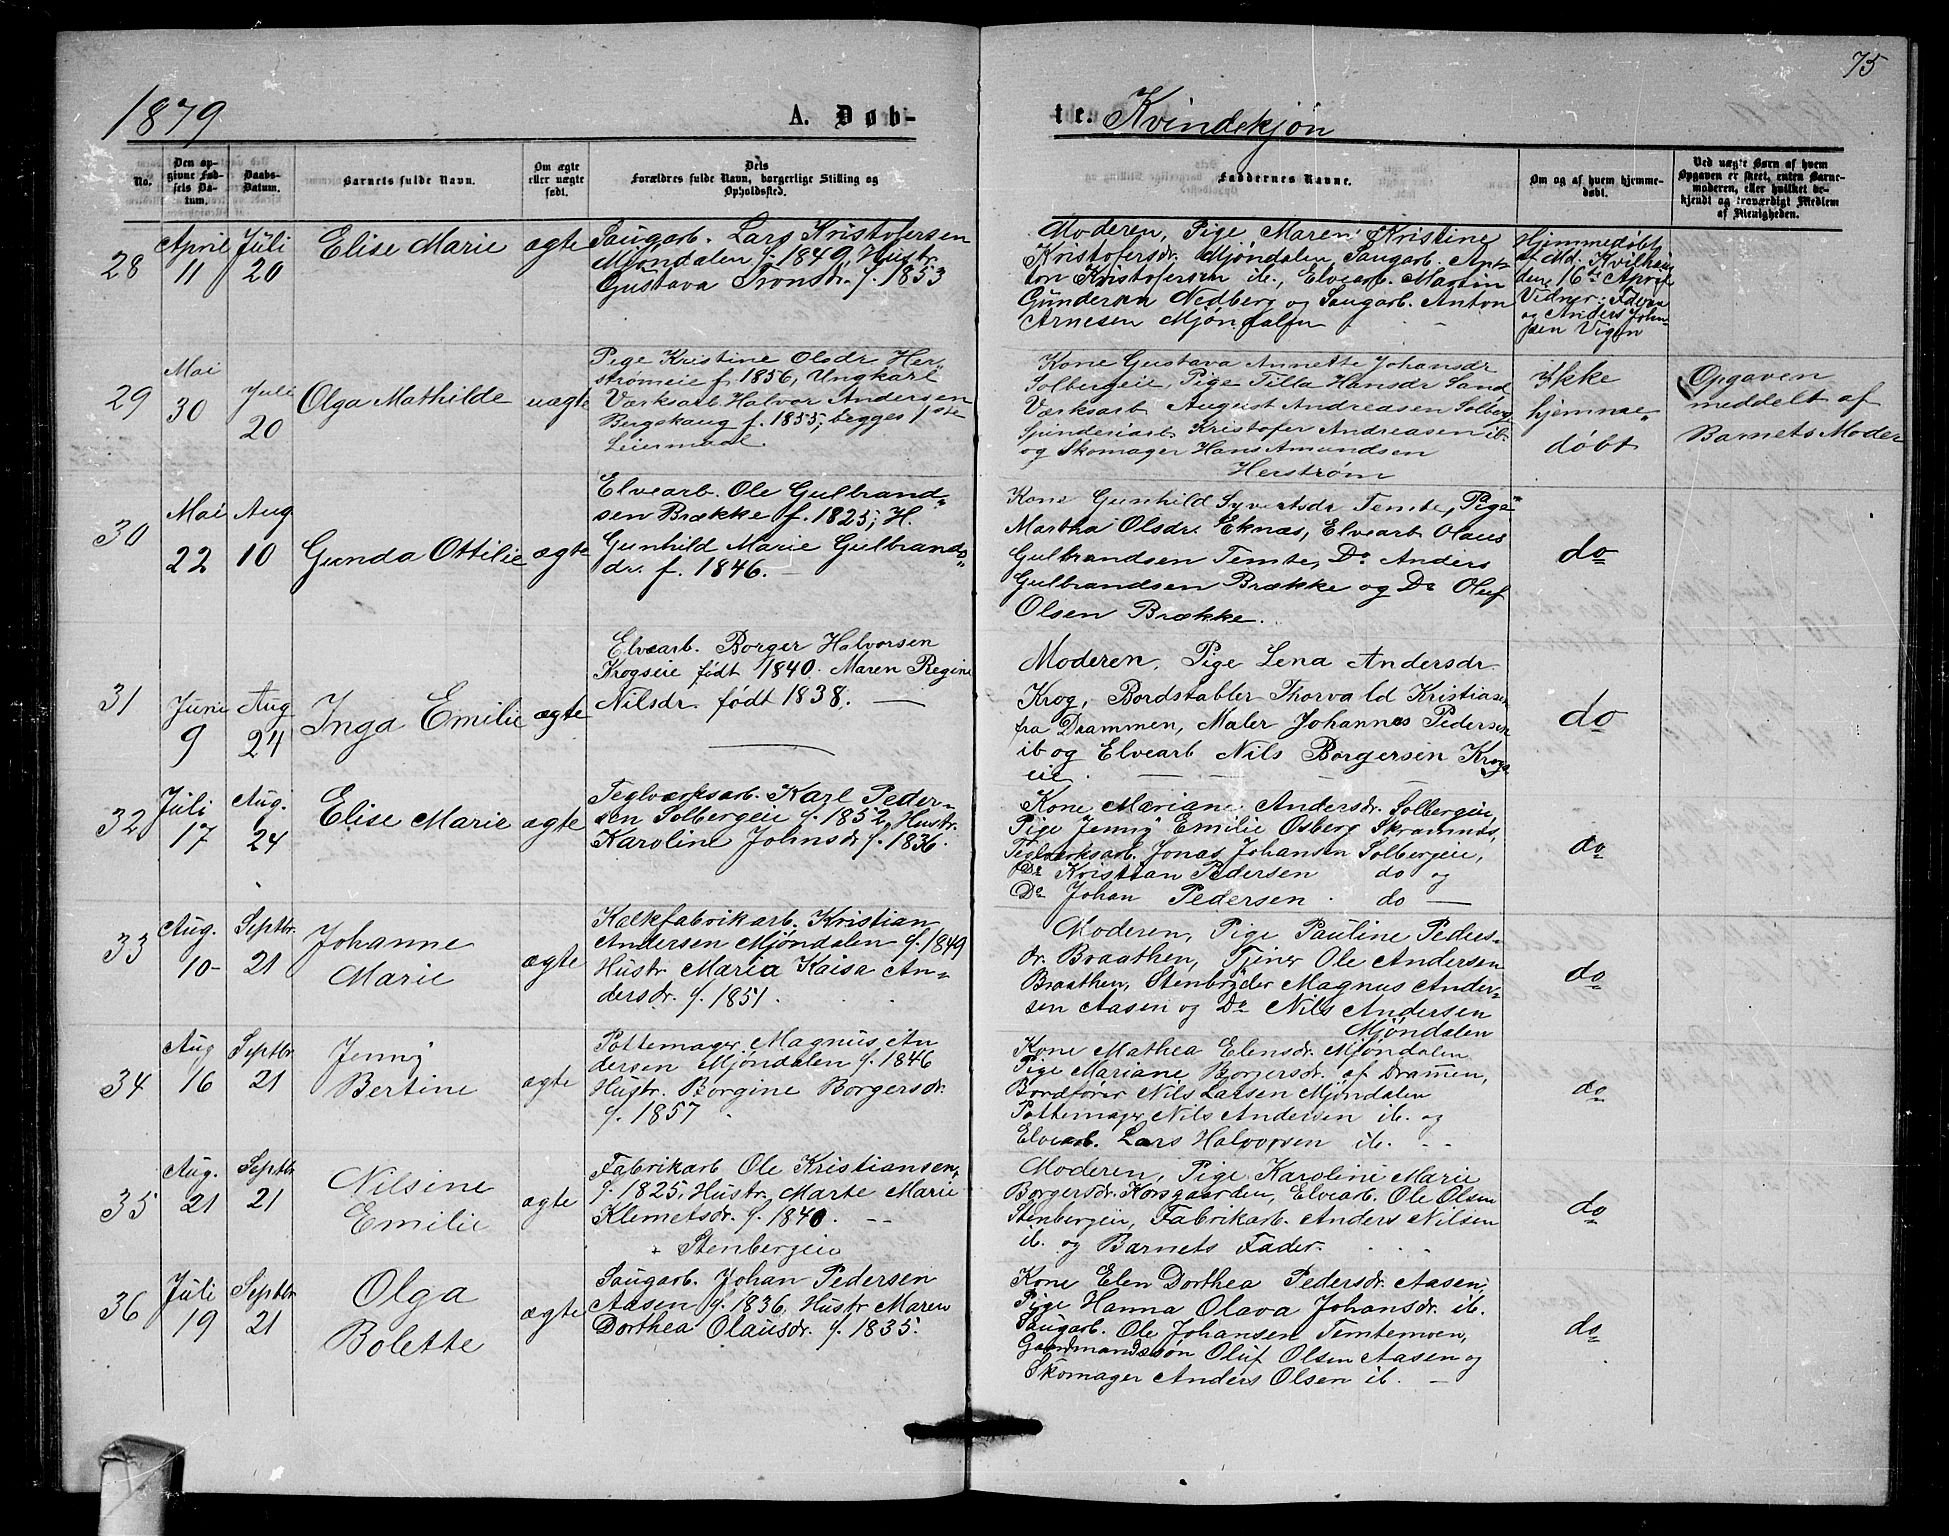 75
1879
A. Døb-
te. Kvindekjøn
No.
Den op-
givne Fød-
sels Da-
tum.
Daabs-
Datum.
Barnets fulde Navn.
Om ægte
eller uægte
født.
Dels
Forældres fulde Navn, borgerlige Stilling og
Opholdssted.
Faddernes Navne.
Om og af hvem hjemme-
døbt.
Ved uægte Børn af hvem
Opgaven er skeet, enten Barne-
moderen, eller hvilket be-
kjendt og troværdigt Medlem
af Menigheden.
28
April
11
Juli
20
Elise Marie
ægte
Saugarb. Lars Kristofersen
Mjøndalen f. 1849, Hustr.
Gustava Tronsdr. f. 1853
Moderen, Pige Maren Kristine
Kristofersdr. Mjøndalen, Saugarb. An-
ton Kristofersen ib., Elvearb. Martin
Gundersen Nedberg og Saugarb. Anton
Arnesen Mjøndalen
Hjemmedøbt
af Md. Kvilhau
den 16de April
Vidner: Faderen
og Anders John-
sen Vigen
29
Mai
30
Juli
20
Olga Mathilde
uægte
Pige Kristine Olsdr Her-
strømeie f. 1856, Ungkarl
Værksarb Halvor Andersen
Bergskaug f. 1855, begges 1ste
Leiermaal
Kone Gustava Annette Johansdr
Solbergeie, Pige Tilla Hansdr Sand,
Værksarb August Andreasen Solberg
Spinderiarb Kristofer Andreasen ib
og Skomager Hans Amundsen
Herstrøm
Ikke
hjemme-
døbt
Opgaven
meddelt af
Barnets Moder
30
Mai
22
Aug
10
Gunda Ottilie
ægte
Elvearb. Ole Gulbrand-
sen Brække f. 1825, H.
Gunhild Marie Gulbrands-
dr. f. 1846.
Kone Gunhild Syvertsdr Temte, Pige
Martha Olsdr. Eknæs, Elvearb Olaus
Gulbrandsen Temte, Do Anders
Gulbrandsen Brække og Do Oluf
Olsen Brække.
do
31
Juni
9
Aug
24
Inga Emilie
ægte
Elvearb. Borger Halvorsen
Krogseie født 1840. Maren Regine
Nilsdr. født 1838.
Moderen, Pige Lena Andersdr
Krog, Bordstabler Thorvald Kristiasen
fra Drammen, Maler Johannes Pedersen
ib og Elvearb Nils Borgersen Krogs
eie
do
32
Juli
17
Aug.
24
Elise Marie
ægte
Teglværksarb. Karl Peder-
sen Solbergeie f. 1852, Hustr.
Karoline Johnsdr f. 1836.
Kone Mariane Andersdr. Solbergeie,
Pige Jenny Emilie Osberg Skramnæs,
Teglværksarb. Jonas Johansen Solbergeie,
Do Kristian Pedersen do og
Do Johan Pedersen do
do
33
Aug.
10
Septbr.
21
Johanne
Marie
ægte
Kalkfabrikarb. Kristian
Andersen Mjøndalen f. 1849
Hustr Maria Kaisa An-
dersdr. f. 1851.
Moderen, Pige Pauline Peders-
dr. Braathen, Tjener Ole Andersen
Braathen, Stenbryder Magnus Ander-
sen Aasen og Do Nils Andersen
Mjøndalen
do
34
Aug
16
Septbr.
21
Jenny
Bertine
ægte
Pottemager Magnus An
dersen Mjøndalen f. 1846
Hustr. Borgine Borgersdr.
f. 1857.
Kone Mathea Elensdr. Mjøndalen
Pige Mariane Borgersdr. af Dramen,
Bordfører Nils Larsen Mjøndalen
Pottemager Nils Andersen ib. og
Elvearb. Lars Halvorsen ib.
do
35
Aug.
21
Septbr
21
Nilsine
Emilie
ægte
Fabrikarb Ole Kristiansen
f. 1825, Hustr. Marte Marie
Klemetsdr. f. 1840.
Stenbergeie
Moderen, Pige Karoline Marie
Borgersdr. Korsgaarden, Elvearb. Ole Olsen
Stenbergeie, Fabrikarb. Anders Nilsen
ib. og Barnets Fader.
do
36
Juli
19
Septbr
21
Olga
Bolette
ægte
Saugarb. Johan Pedersen
Aasen f. 1836, Hustr Maren
Dorthea Olausdr. f. 1835.
Kone Elen Dorthea Pedersdr. Aasen,
Pige Hanna Olava Johansdr. ib.
Saugarb. Ole Johansen Temtemoen,
Gaardmandssøn Oluf Olsen Aasen og
Skomager Anders Olsen ib.
do